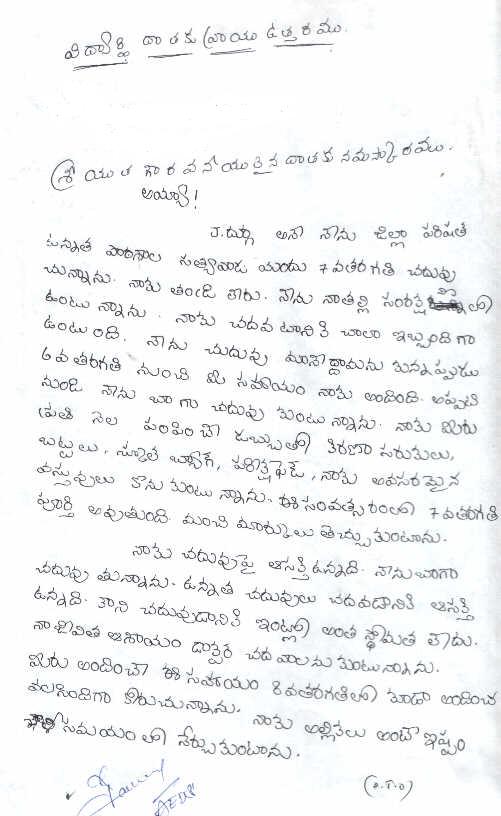 విద్యార్థి దాతకు వ్రాయు ఉత్తరము.
శ్రీ యుత గౌరవనీయులైన దాతకు నమస్కారములు.
అయ్యా!
J.దుర్గ అనే నేను జిల్లా పరిషత్
ఉన్నత పాఠశాల సత్యవాడ యందు 7వతరగతి చదువు
చున్నాను. నాకు తండ్రి లేరు. నేను నాతల్లి సంరక్షణలో
ఉంటున్నాను. నాకు చదవటానికి చాలా ఇబ్బందిగా
ఉంటుంది. నేను చదువు మానేద్దామను కున్నప్పుడు
6వతరగతి నుంచి మీ సహాయం నాకు అందింది. అప్పటి
నుండి నేను బాగా చదువు కుంటున్నాను. నాకు మీరు
ప్రతి నెల పంపించే డబ్బుతో కిరాణా సరుకులు,
బట్టలు, స్కూల్ బ్యాగ్, పరీక్ష ఫీజు, నాకు అవసరమైన
వస్తువులు కొనుకుంటున్నాను. ఈసంవత్సరంలో 7వతరగతి
పూర్తి అవుతుంది. మంచి మార్కులు తెచ్చుకుంటాను.
నాకు చదువుపై ఆసక్తి ఉన్నది. నేనుబాగా
చదువుతున్నాను. ఉన్నత చదువులు చదవడానికి ఆసక్తి
ఉన్నది. కాని చదువుడానికి ఇంట్లో అంత స్థోమత లేదు.
నా జీవిత ఆశయం డాక్టర్ చదవాలనుకుంటున్నాను.
మీరు అందించే ఈ సహాయం 8వతరగతిలో కూడా అందించ
వలసిందిగా కోరుచున్నాను.
నాకు అల్లికలు అంటే ఇష్టం
ఖాళీ సమయంలో నేర్చుకుంటాను.
(P.T.O)